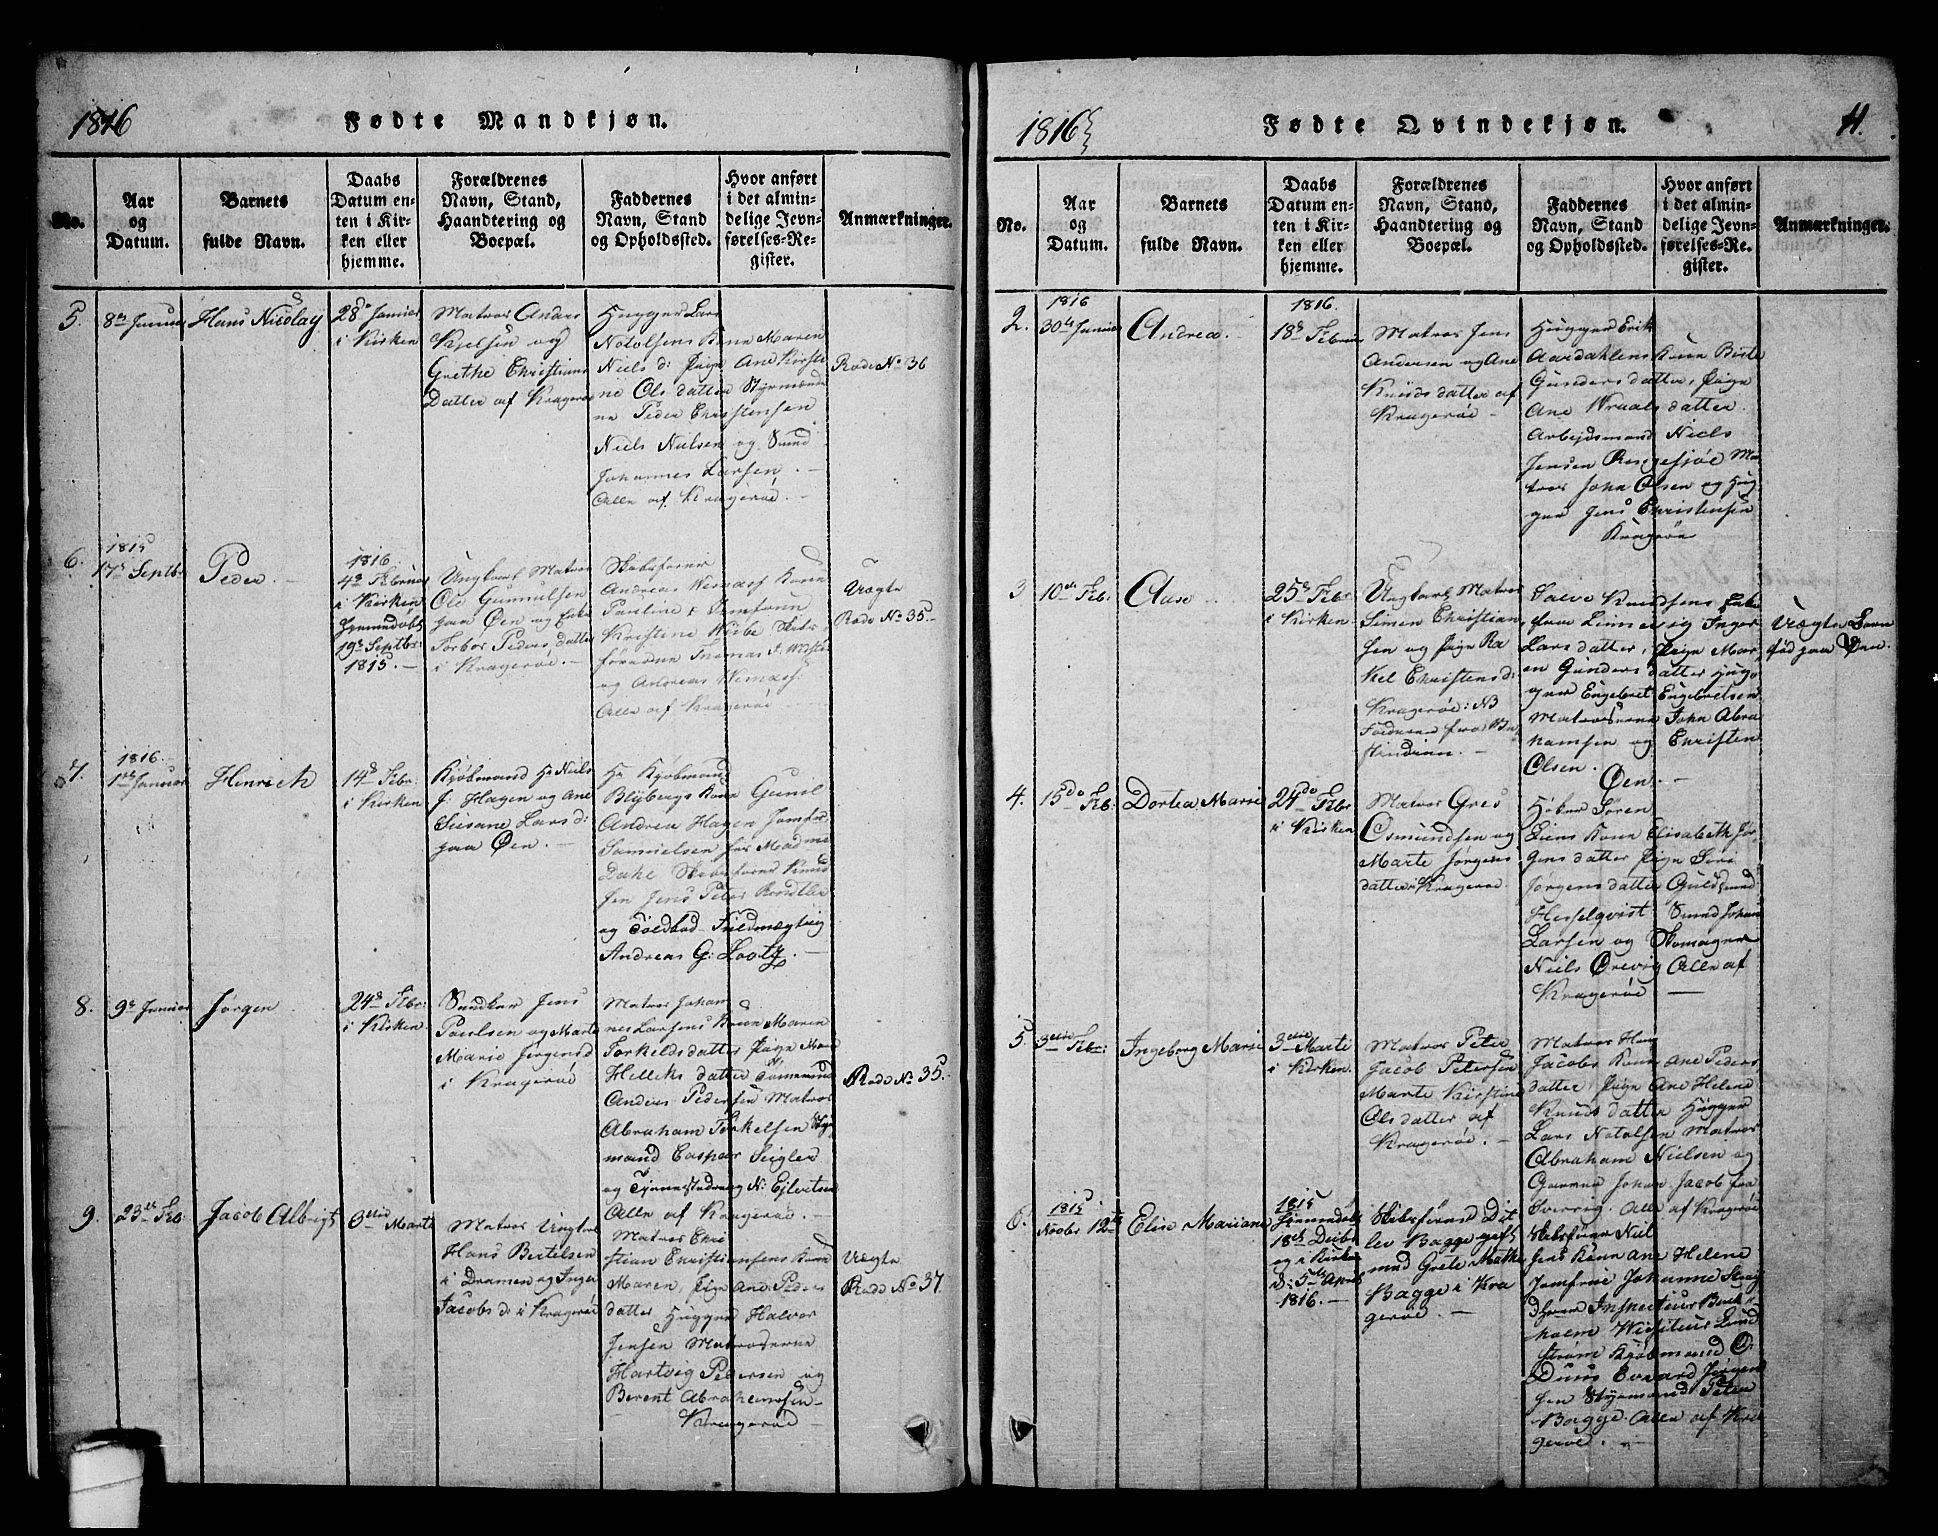 1816
Fødte Mandkjøn.
No.
Aar
og
Datum.
Barnets
fulde Navn.
Daabs
Datum en-
ten i Kir-
ken eller
hjemme.
Forældrenes
Navn, Stand,
Haandtering og
Boepæl.
Faddernes
Navn, Stand
og Opholdssted.
Hvor anført
i det almin-
delige Jevn-
førelses-Re-
gister.
Anmærkninger.
5.
Hans Nicolay
i Kirken
Matros Anders
Kjelsen og
Grethe Christians
Datter af Kragerøe
Hugger Lars
Notolsens Kone Maren
Niels d: Pige Ane Kirsti-
ne Ols datter Styrmænde
ne Peder Christensen
Niels Nielsen og Smed
Johannes Larsen. -
Alle af Kragerøe. -
Rode No 36
6.
1815
17 Septbr
Peder. -
1816.
4de Februar
i Kirken
Hjemmedøbt
19de Septbr
1815. -
Ungkarl Matros
Ole Gunnulsen
paa Øen og Enke
Torbor Peders datter
i Kragerøe. -
Skibsfører
Andreas Kone
Pauline & Jomfruen
Kristine Wibe Skibs
førerne Thomas
og Andreas
Alle af Kragerøe
Uægte
Rode No 35. -
7.
1816. -
1ste Januar
Henrich
14de Febr
i Kirken
Kjøbmand Hr Niels
J: Hagen og Ane
Susane Lars d:
paa Øen. -
Hr Kjøbmand
Blybergs Kone Gunil
Andrea Hagen Jomfr
Samuelsen for Madme
Dahl Skibsførerne Knud
sen Jens Peter
og Toldbod-Fuldmægtig
Andreas G: Lootz. -
8.
9de Januar
Jørgen
24de Febr:
i Kirken
Jens
Poulsen og Marte
Marie Jørgens d
i Kragerøe
Matros Johan
nes Larsens Kone Maren
Torkelds datter Pige Mar
Helleks datter Tømmermd
Anders Pedersen Matros
Abraham Torkelsen Styr
mand Caspar Seigler
og N: Ejlvetsen
Alle af Kragerøe. -
Rode No 35.
9.
23de Feb
Jacob Albrigt
6te Marti
Matros Ungkarl
Hans Bertelsen
i Dramen og Inger
Jacobs d: i Kragerøe
Matros Chri
stian Christiansens Kone
Maren, Pige Ane Peders
datter Hugger Halvor
Jensen Matroserne
Hartvig Pedersen og
Berent Abrahamsen -
Kragerøe -
Uægte
Rode No 37.
1816
Fødte Qvindekjøn.
11.
No.
Aar
og
Datum.
Barnets
fulde Navn.
Daabs
Datum en-
ten i Kir-
ken eller
hjemme.
Forældrenes
Navn, Stand,
Haandtering og
Boepæl.
Faddernes
Navn, Stand
og Opholdssted.
Hvor anført
i det almin-
delige Jevn-
førelses-Re-
gister.
Anmærkninger.
2.
1816
30te Januar
Andrea. -
1816.
18de Februar
Matros Jens
Andersen og Ane
Knuds datter af
Kragerøe -
Hugger Erik
Aardahlens Kone Birte
Gunders datter, Pige
Ane Wraals datter.
Arbejdsmand Niels
Jensen Ma
tros John Olsen og Hug
ger Jens Christensen
Kragerøe
3
10de Feb:
Aase -
25de Febr
i Kirken.
Ungkarl Matros
Simen Christian
sen og Pige Ra
kel Christens d:
Kragerøe: NB
Faderen fra
Salve Knudsens Enke
Inger
Lars datter, Pige Mar
en Gunders datter Hug
ger Engebret Engebretsen
Matroserne John Abra
hamsen og Christen
Olsen. Øen. -
Uægte Barn
fød paa Øen.
4.
15de Feb:
Dortea Marie
24de Febr
i Kirken
Matros Gres
Osmundsen og
Marte Jørgens
datter i Kragerøe
Høker Søren
Liens Kone Elisabeth Jør
gens datter Pige Siri
Jørgens datter Guldsmed
Hesselqvist Smed Johan
Larsen og Skomager
Niels Ørevig Alle af
Kragerøe -
5.
Febr:
Ingeborg Marie
3die Marti
i Kirken.
Matros Peter
Jacob Petersen
Marte Kirstine
Ols datter af
Kragerøe. -
Matros Hans
Jacobs Kone Ane Peders
datter, Pige Ane Helene
Knuds datter Hugger
Lars Notolsen Matros
Abraham Nielsen og
Johan Jacob fra
Alle af Kragerøe
6.
1815
Novbr 12te
Elise Mariane
1815
Hjemmedøbt
18de Decbr
og i Kirken
d: 5te April
1816. -
Skibsfører Dit
lev Bagge gift
med Grete
Bagge i Kra
gerøe. -
Skibsfører Niel
sens Kone Ane Helene
Jomfrue Johanne
Herrer Inspecteur Buch
holm Wisiteur Lund
strøm Kjøbmand O.
Duus Evvard Jørgen
sen Styrmand Peter
Bagge. Alle af Kra
gerøe. -